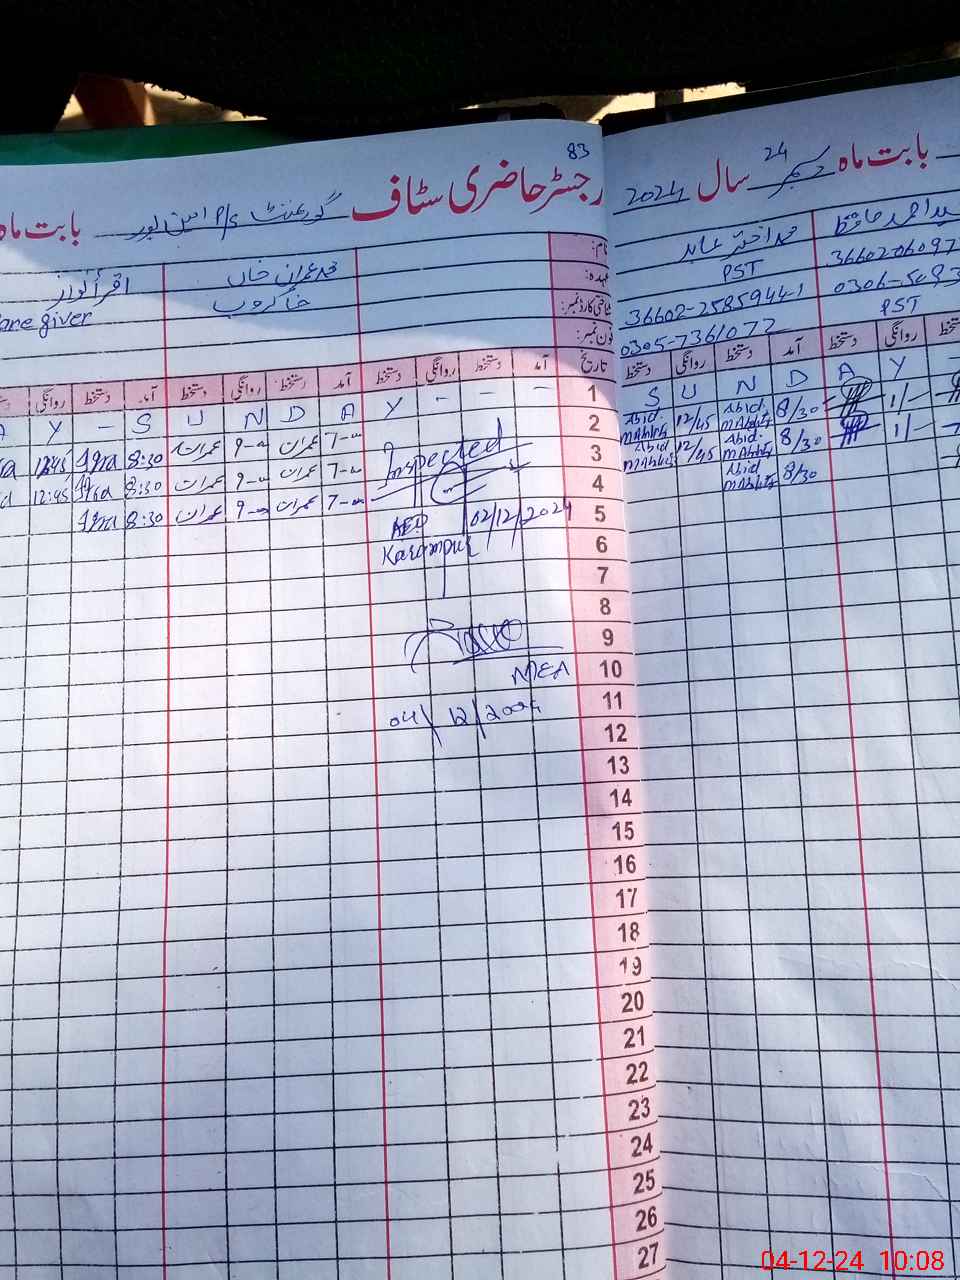 83
رجسٹر حاضری سٹاف گورنمنٹ P/S امین پور بابت ماہ
بابت ماہ دسمبر 24 سال 2024
نام:
محمد عمران خان
اقرأ انوار
محمد اختر عابد
عہدہ:
خاکروب
Care giver
PST
شناختی کارڈ نمبر:
36602-2585944-1
36602-06097
فون نمبر:
0305-7361072
0306-5093
PST
تاریخ آمد دستخط روانگی دستخط آمد دستخط روانگی دستخط آمد دستخط روانگی
دستخط روانگی دستخط آمد دستخط روانگی دستخط
1 S U N D A Y - -
S U N D A Y -
S U N D A Y
2 7-00 عمران 9-00 عمران 8:30 Iqra 12:45
Abid Mahmood 12/45 Abid Mahmood 8/30 1/
3 7-00 عمران 9-00 عمران 8:30 Iqra 12:45
Abid Mahmood 12/45 Abid Mahmood 8/30 1/
4 7-00 عمران 9-00 عمران 8:30 Iqra
Abid Mahmood 8/30
Inspected
5
AEO 02/12/2024
Karampur
6
7
8
9
10
MEA
11
04/12/2024
12
13
14
15
16
17
18
19
20
21
22
23
24
25
26
27
04-12-24 10:08